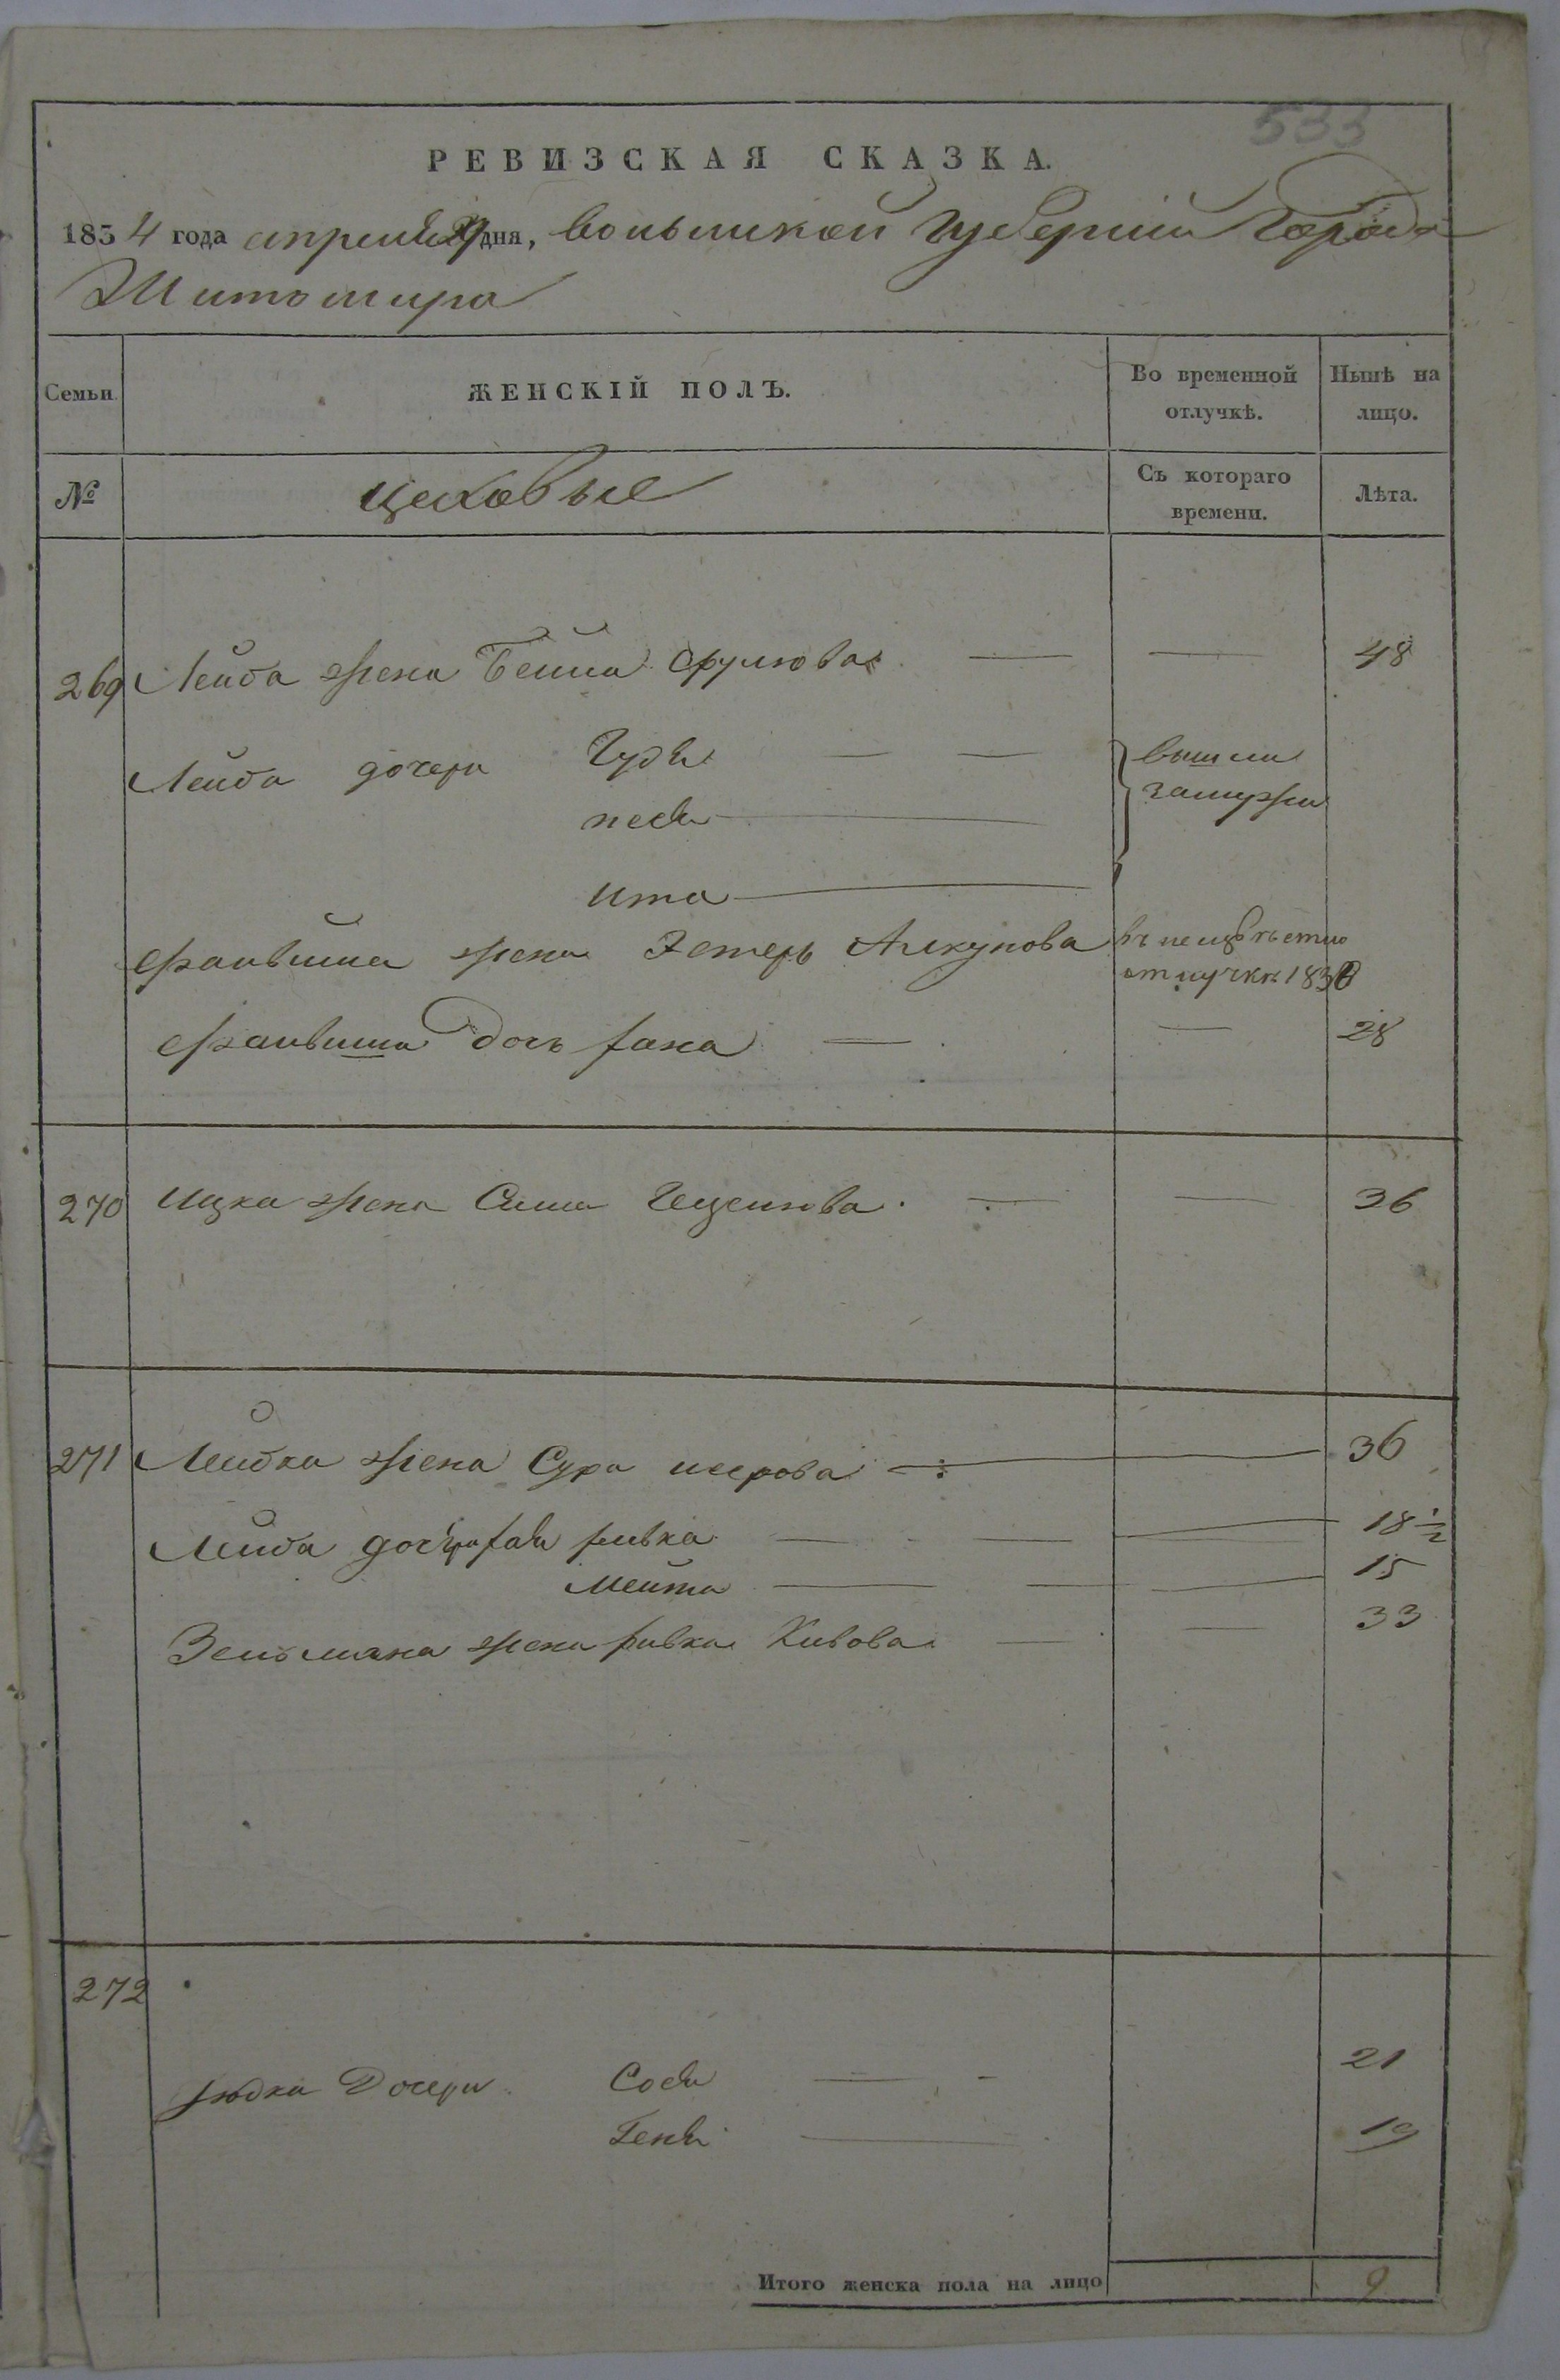 533
РЕВИЗСКАЯ СКАЗКА.
1834 года апреля дня, волынской губернии города
Житомира
Семьи.
ЖЕНСКІЙ ПОЛЪ.
Во временной отлучкѣ.
Нынѣ на лицо.
№
цеховые
Съ котораго времени.
Лѣта.
269 Лейба жена Бейла Сруліова — — 48
Лейба дочери Гудя — — вышли
песя — замужъ
ита —
жена Эстеръ въ неизвѣстно
отлучкѣ 183
дочь — — 28
270 Ицка жена — — 36
271 Лейбка жена Сура — 36
Лейба ривка — — 18 1/2
Мейта — — 15
Зельмана жена ривка Кивова — — 33
272
Юдка Дочери Сося — - 21
Геня — 19
Итого женска пола на лицо 9